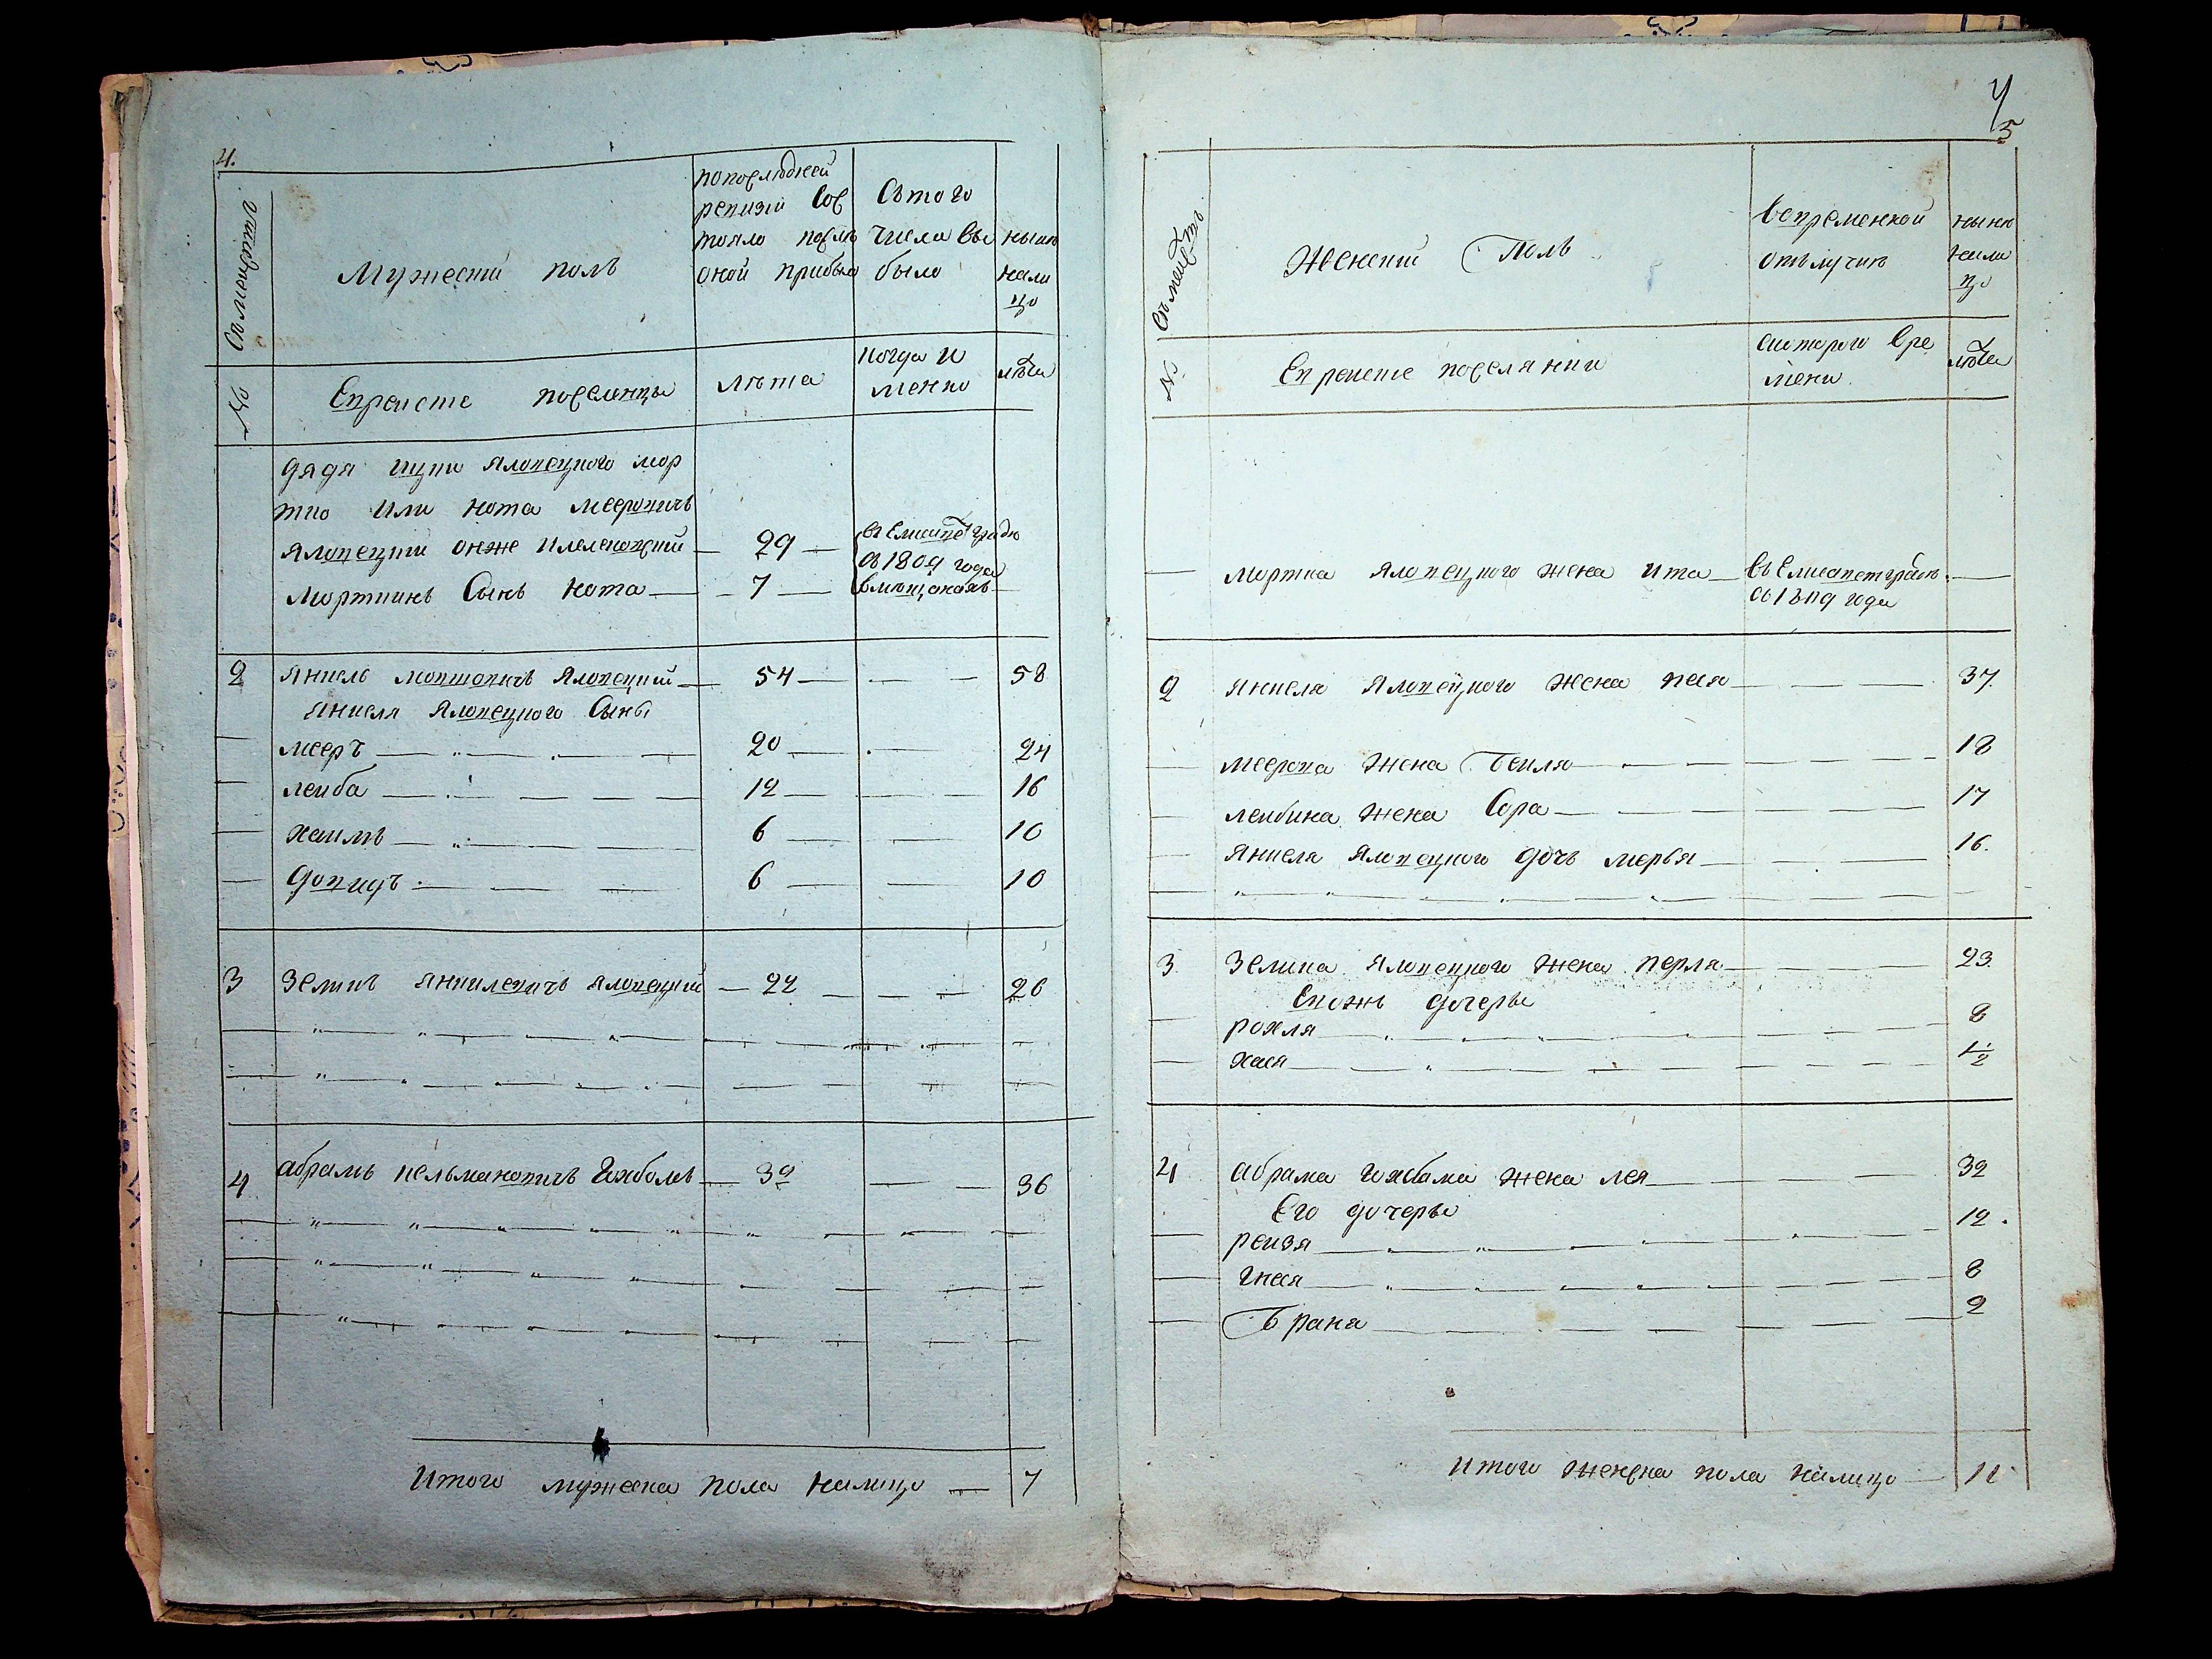 4.
Семействъ
Мужеский полъ
попоследней
ревизии сос
тояло после
оной прибыло
Сътого
числа вы
было
ныне
нали
цо
№
Еврейске поселенцы
лета
когда и
менно
лета
дядя ицки Яловецкого мор
тко или нота Мееровичъ
Яловецкий онже
29
въ Елисаветграде
съ 1809 года
Морткинъ Сынъ нота
7
2
Янкель Мовшовичъ Яловецкий
54
58
Янкеля Яловецкого Сыны
мееръ
20
24
леиба
12
16
хаимъ
6
10
довидъ
6
10
3
Зеликъ Янкилевичъ Яловецкий
22
26
4
абрамъ кельмановичъ Гихбомъ
32
36
Итого мужеска пола налицо
7
4
5
Семействъ
Женский Полъ
вовременной
отълучке
ныне
нали
цо
№
Еврейске поселянки
скоторого вре
мени
лета
Мортка Яловецкого жена ита
въ Елисаветграде
съ 1809 года
2
Янкеля Яловецкого жена песя
37
Меерова жена Беиля
18
леибина жена Сора
17
Янкеля Яловецкого дочъ мерья
16.
3
Зелика Яловецкого жена перля
23.
Еиожъ дочеры
рохля
8
хая
1/2
4
абрама Гихбома жена лея
32
Его дочеры
реизя
12.
гнеся
8
Брана
2
Итого женска пола налицо
11